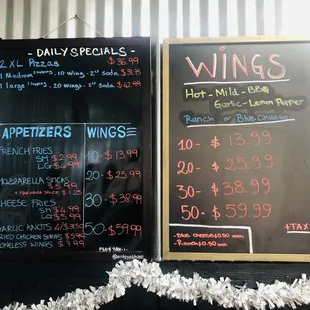 - DAILY SPECIALS -
2 XL Pizzas $36.99
1 Medium 2 toppings, 10 wing - 2" soda $31.75
1 large 20 wings - 2" soda $42.99
APPETIZERS
FRENCH FRIES
SM $2.99
LG $4.99
MOZZARELLA STICKS
$5.99
+ MARINARA SAUCE $
CHEESE FRIES
SM $4.99
LG $5.99
GARLIC KNOTS 6/$3.50
FRIED CHICKEN STRIPS $5.99
BONELESS WINGS $7.99
WINGS
10 - $13.99
20 - $25.99
30 - $38.99
50 - $59.99
PLUS TAX
WINGS
Hot - Mild - BBQ
Garlic - Lemon Pepper
Ranch or Blue Cheese
10 - $13.99
20 - $25.99
30 - $38.99
50 - $59.99
+TAX
- Blue Cheese $0.50
- Ranch $0.50